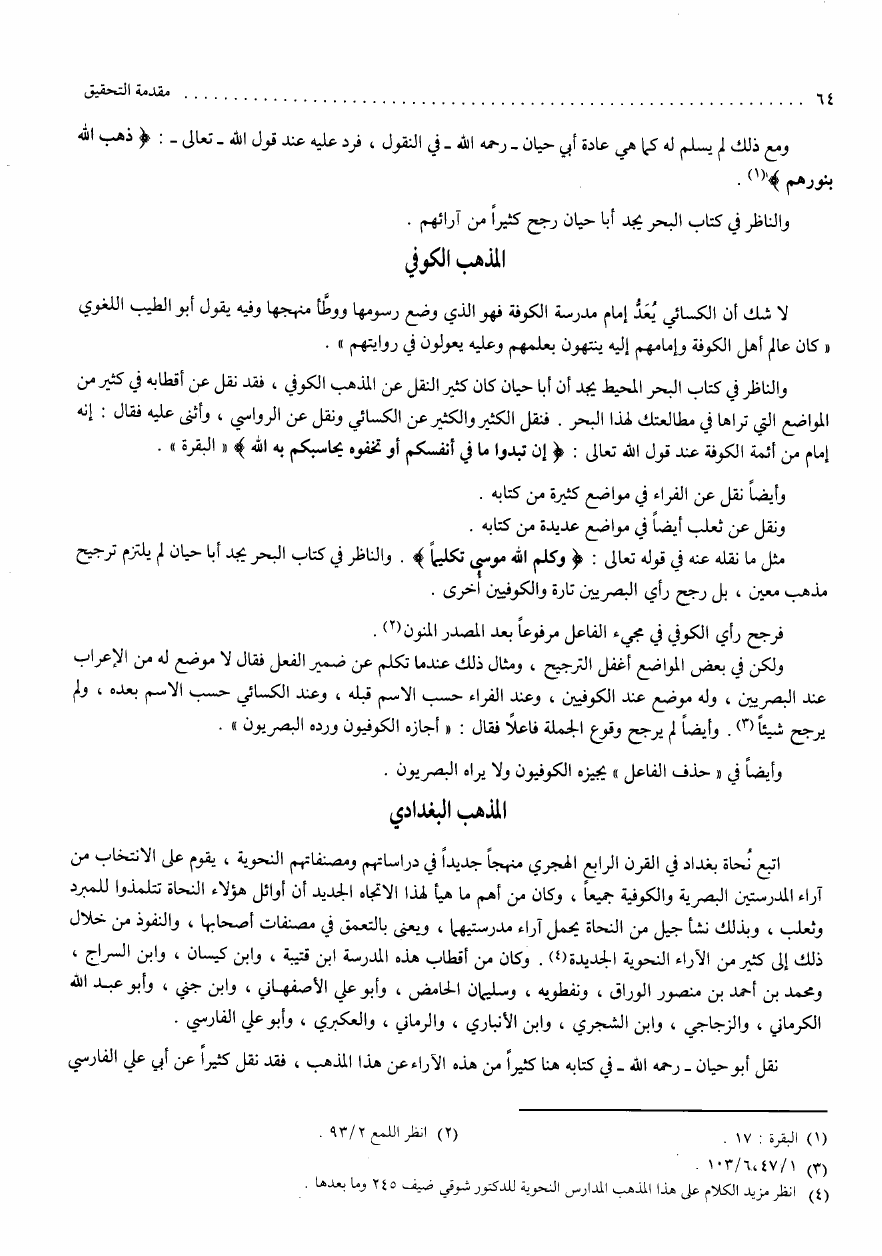 ٦٤ ............................................................... مقدمة التحقيق
ومع ذلك لم يسلم له كما هي عادة أبي حيان ـ رحمه الله ـ في النقول ، فرد عليه عند قول الله ـ تعالى ـ : ﴿ ذهب الله
بنورهم ﴾(١) .
والناظر في كتاب البحر يجد أبا حيان رجح كثيراً من آرائهم .
المذهب الكوفي
لا شك أن الكسائي يُعَدُّ إمام مدرسة الكوفة فهو الذي وضع رسومها ووطَّأ منهجها وفيه يقول أبو الطيب اللغوي
« كان عالم أهل الكوفة وإمامهم إليه ينتهون بعلمهم وعليه يعولون في روايتهم » .
والناظر في كتاب البحر المحيط يجد أن أبا حيان كان كثير النقل عن المذهب الكوفي ، فقد نقل عن أقطابه في كثير من
المواضع التي تراها في مطالعتك لهذا البحر . فنقل الكثير والكثير عن الكسائي ونقل عن الرواسي ، وأثنى عليه فقال : إنه
إمام من أئمة الكوفة عند قول الله تعالى : ﴿ إن تبدوا ما في أنفسكم أو تخفوه يحاسبكم به الله ﴾ « البقرة » .
وأيضاً نقل عن الفراء في مواضع كثيرة من كتابه .
ونقل عن ثعلب أيضاً في مواضع عديدة من كتابه .
مثل ما نقله عنه في قوله تعالى : ﴿ وكلم الله موسى تكليماً ﴾ . والناظر في كتاب البحر يجد أبا حيان لم يلتزم ترجيح
مذهب معين ، بل رجح رأي البصريين تارة والكوفيين أخرى .
فرجح رأي الكوفي في مجيء الفاعل مرفوعاً بعد المصدر المنون(٢) .
ولكن في بعض المواضع أغفل الترجيح ، ومثال ذلك عندما تكلم عن ضمير الفعل فقال لا موضع له من الإعراب
عند البصريين ، وله موضع عند الكوفيين ، وعند الفراء حسب الاسم قبله ، وعند الكسائي حسب الاسم بعده ، ولم
يرجح شيئاً(٣) . وأيضاً لم يرجح وقوع الجملة فاعلاً فقال : « أجازه الكوفيون ورده البصريون » .
وأيضاً في « حذف الفاعل » يجيزه الكوفيون ولا يراه البصريون .
المذهب البغدادي
اتبع نُحاة بغداد في القرن الرابع الهجري منهجاً جديداً في دراساتهم ومصنفاتهم النحوية ، يقوم على الانتخاب من
آراء المدرستين البصرية والكوفية جميعاً ، وكان من أهم ما هيأ لهذا الاتجاه الجديد أن أوائل هؤلاء النحاة تتلمذوا للمبرد
وثعلب ، وبذلك نشأ جيل من النحاة يحمل آراء مدرستيهما ، ويعنى بالتعمق في مصنفات أصحابها ، والنفوذ من خلال
ذلك إلى كثير من الآراء النحوية الجديدة(٤) . وكان من أقطاب هذه المدرسة ابن قتيبة ، وابن كيسان ، وابن السراج ،
ومحمد بن أحمد بن منصور الوراق ، ونفطويه ، وسليمان الحامض ، وأبو علي الأصفهاني ، وابن جني ، وأبو عبد الله
الكرماني ، والزجاجي ، وابن الشجري ، وابن الأنباري ، والرماني ، والعكبري ، وأبو علي الفارسي .
نقل أبو حيان ـ رحمه الله ـ في كتابه هنا كثيراً من هذه الآراء عن هذا المذهب ، فقد نقل كثيراً عن أبي علي الفارسي
(١) البقرة : ١٧ .
(٢) انظر اللمع ٩٣/٢ .
(٣) ١٠٣/٦،٤٧/١ .
(٤) انظر مزيد الكلام على هذا المذهب المدارس النحوية للدكتور شوقي ضيف ٢٤٥ وما بعدها .